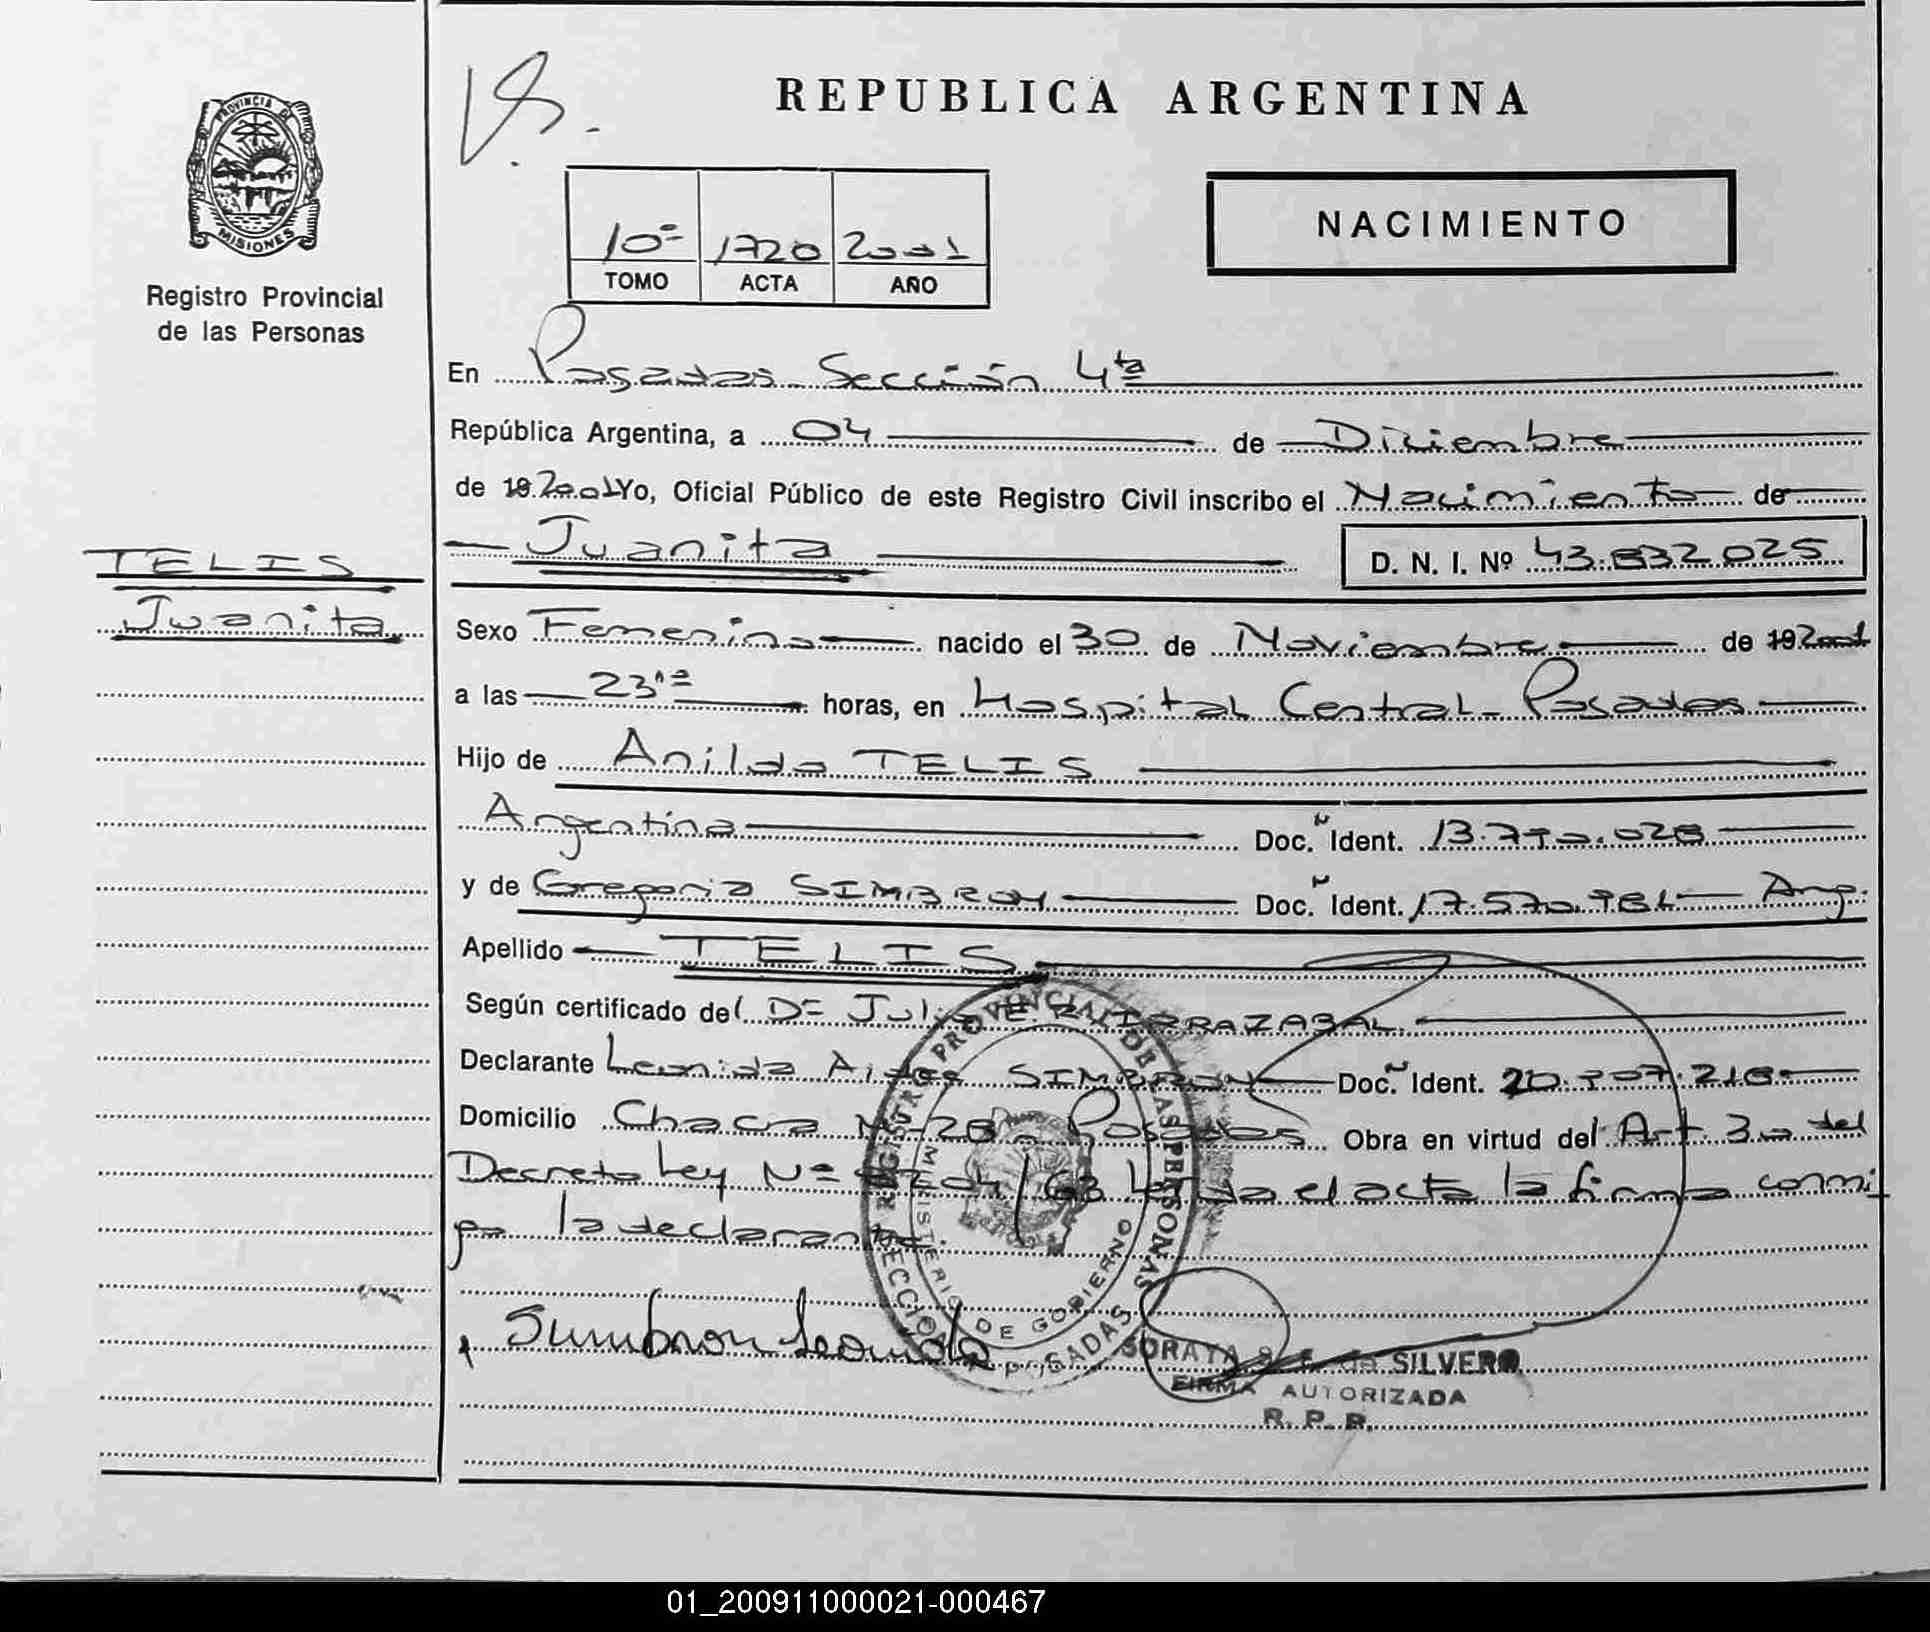 REPUBLICA ARGENTINA
PROVINCIA DE
MISIONES
Registro Provincial
de las Personas
10º 1720 2001
TOMO ACTA AÑO
NACIMIENTO
En Posadas Sección 4ta
República Argentina, a 04 de Diciembre
de 19 2001 Yo, Oficial Público de este Registro Civil inscribo el Nacimiento de
Juanita D. N. I. Nº 43.832.025
TELIS
Juanita
Sexo Femenino nacido el 30 de Noviembre de 19 2001
a las 23 horas, en Hospital Central - Posadas
Hijo de Anildo TELIS
Argentina Doc. Ident.
y de Gregoria SIMBRON Doc. Ident. Arg.
Apellido TELIS
Según certificado del Dº
Declarante Leonida SIMBRON Doc. Ident.
Domicilio Chacra Nº 28 - Posadas Obra en virtud del Art. 30 del
Decreto Ley Nº el acta la firma conmi
go la declarante.
REGISTRO PROVINCIAL DE LAS PERSONAS
MINISTERIO DE GOBIERNO
DIRECCION POSADAS
Simbron Leonida
SILVERO
FIRMA AUTORIZADA
R. P. P.
01_200911000021-000467